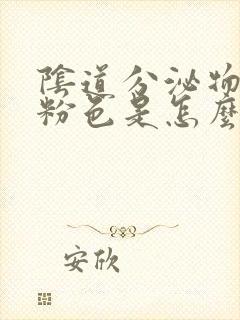 陰道分泌物
粉色是怎麼
安欣